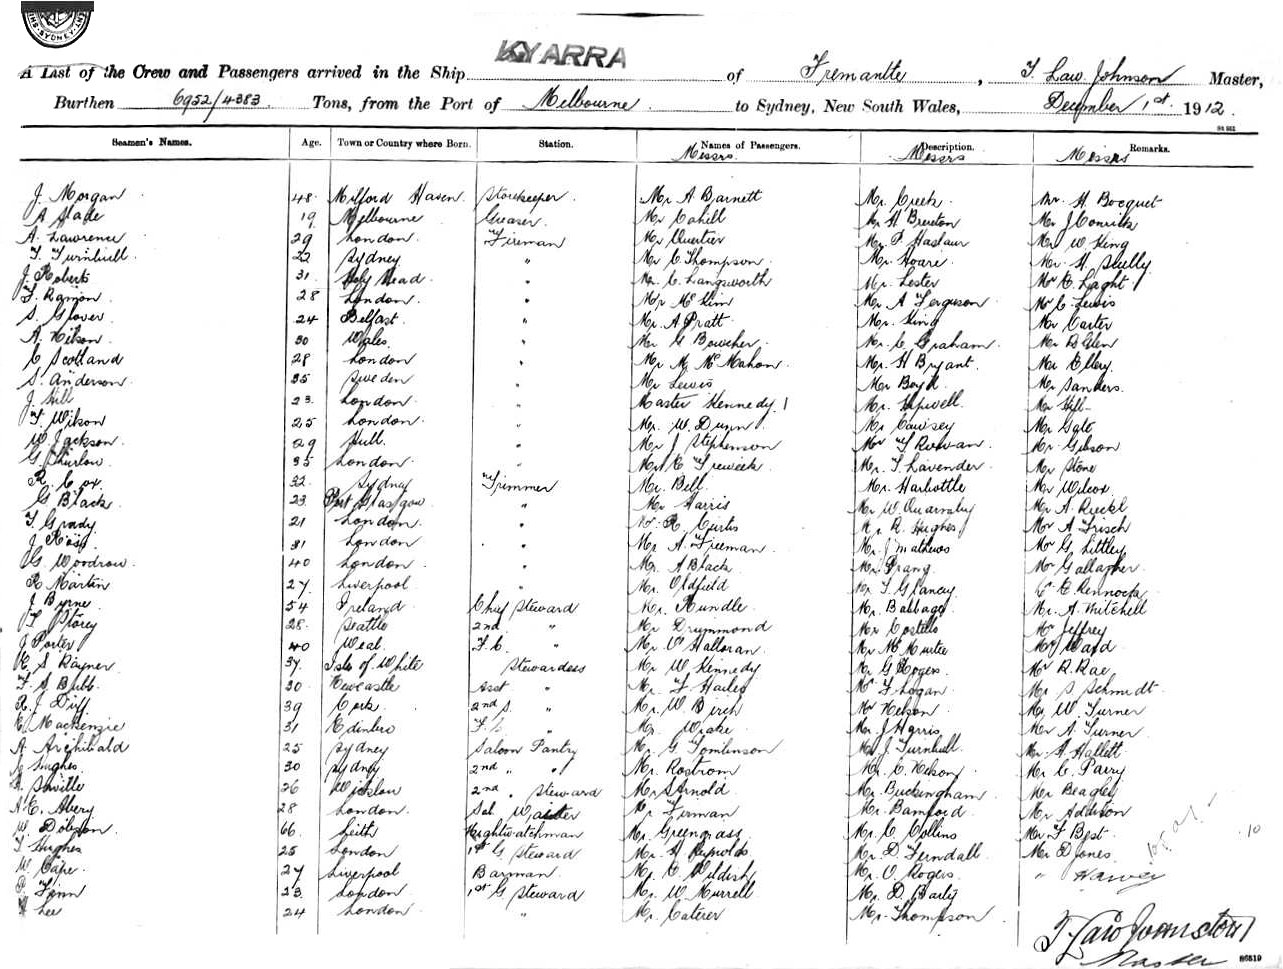 SYDNEY
KYARRA
A List of the Crew and Passengers arrived in the Ship of Fremantle, T. Law. Johnson Master,
Burthen 6952/4383 Tons, from the Port of Melbourne to Sydney, New South Wales, December 1st 1912.
Seamen's Names. Age. Town or Country where Born. Station. Names of Passengers. Description. Remarks.
Messrs. Messrs Messrs
J. Morgan 48 Milford Haven Storekeeper Mr A Barnett Mr. Creek Mr. H. Bocquet
A Slade 19 Melbourne Greaser Mr Cahill Mr H Brereton Mr J Conricks
A. Lawrence 29 London Fireman Mr Mr. P Haslam Mr W King
T. Turnbull 22 Sydney " Mr C Thompson Mr. Hoare Mr. H. Skelly
J Roberts 31 Holy Head " Mr. C. Langsworth Mr. Lester Mr C. Laght
F. Ramon 28 London " Mr Mc Kim Mr. A Ferguson Mr C Lewis
S. Glover 24 Belfast " Mr. A Pratt Mr. King Mr Carter
A. Nelson 30 Wales " Mr G Bowcher Mr. C Graham Mr
C Scotland 28 London " Mr M. Mc Mahon Mr. H Bryant Mr Ellery
S. Anderson 35 Sweden " Mr Lewis Mr Boyd Mr Sanders
J. Hill 23 London " Master Kennedy 1 Mr. Hopwell Mr Hill
F. Wilson 25 London " Mr. W. Dunn Mr Cawsey Mr Gate
W Jackson 29 Hull " Mr J Stephenson Mr T Rowan Mr. Gibson
G. Thurlow 35 London " Mr C Treweek Mr. T. Lavender Mr Stone
R. Cox 32 Sydney Trimmer Mr. Bell Mr. Harbottle Mr Wilcox
G Black 23 Port Glasgow " Mr Harris Mr W. Mr A.
T. Grady 21 London " Mr R. Curtis Mr R. Hughes Mr A Frisch
J. Ross 31 London " Mr A. Freeman Mr. J Mathews Mr G. Littley
G. Woodrow 40 London " Mr. A Black Mr. Prang Mr Gallagher
R Martin 27 Liverpool " Mr. Oldfield Mr. T Glancy C Rennocks
J Byrne 54 Ireland Chief Steward Mr. Rundle Mr. Babbage Mr. A. Mitchell
F. Storey 28 Seattle 2nd " Mr Drummond Mr Costello Mr Jeffrey
J Porter 40 Weal F.C. " Mr O'Halloran Mr Mc Murtie Mr Ward
C. S Rayner 37 Isle of White Stewardess Mr W Kennedy Mr G Rogers Mr R. Rae
F. S Bubb 30 Newcastle Asst " Mr. F Hailes Mr F Logan Mr S Schmidt
R. J Diff 39 Cork 2nd S. " Mr. W. Birch Mr Nelson Mr W Turner
C. Mackenzie 31 Edinbro " Mr. Wrake Mr. J Harris Mr A Turner
A. Archibald 25 Sydney Saloon Pantry Mr. G Tomlinson Mr J. Turnbull Mr. A Hallett
Hughes 30 Sydney 2nd " " Mr. Rostrom Mr. C. Nelson Mr C Parry
Saville 26 Wicklow 2nd " Steward Mr. Arnold Mr. Buckingham Mr Beagley
A. C. Abery 28 London Sal. Waiter Mr Firman Mr. Bamford Mr Addison
W. Dobson 66 Leith Nightwatchman Mr. Greengrass Mr. C Collins Mr F Best
T. Hughes 25 London 1st G Steward Mr. H Reynolds Mr. D. Ferndall Mr D Jones
W. Cape 27 Liverpool Barman Mr. C Wildish Mr. O Rogers " Harvey
Finn 23 London 1st G Steward Mr. W Murrell Mr. D. Early
Lee 24 London " Mr. Caterer Mr. Thompson
10
T. Law Johnston
Master